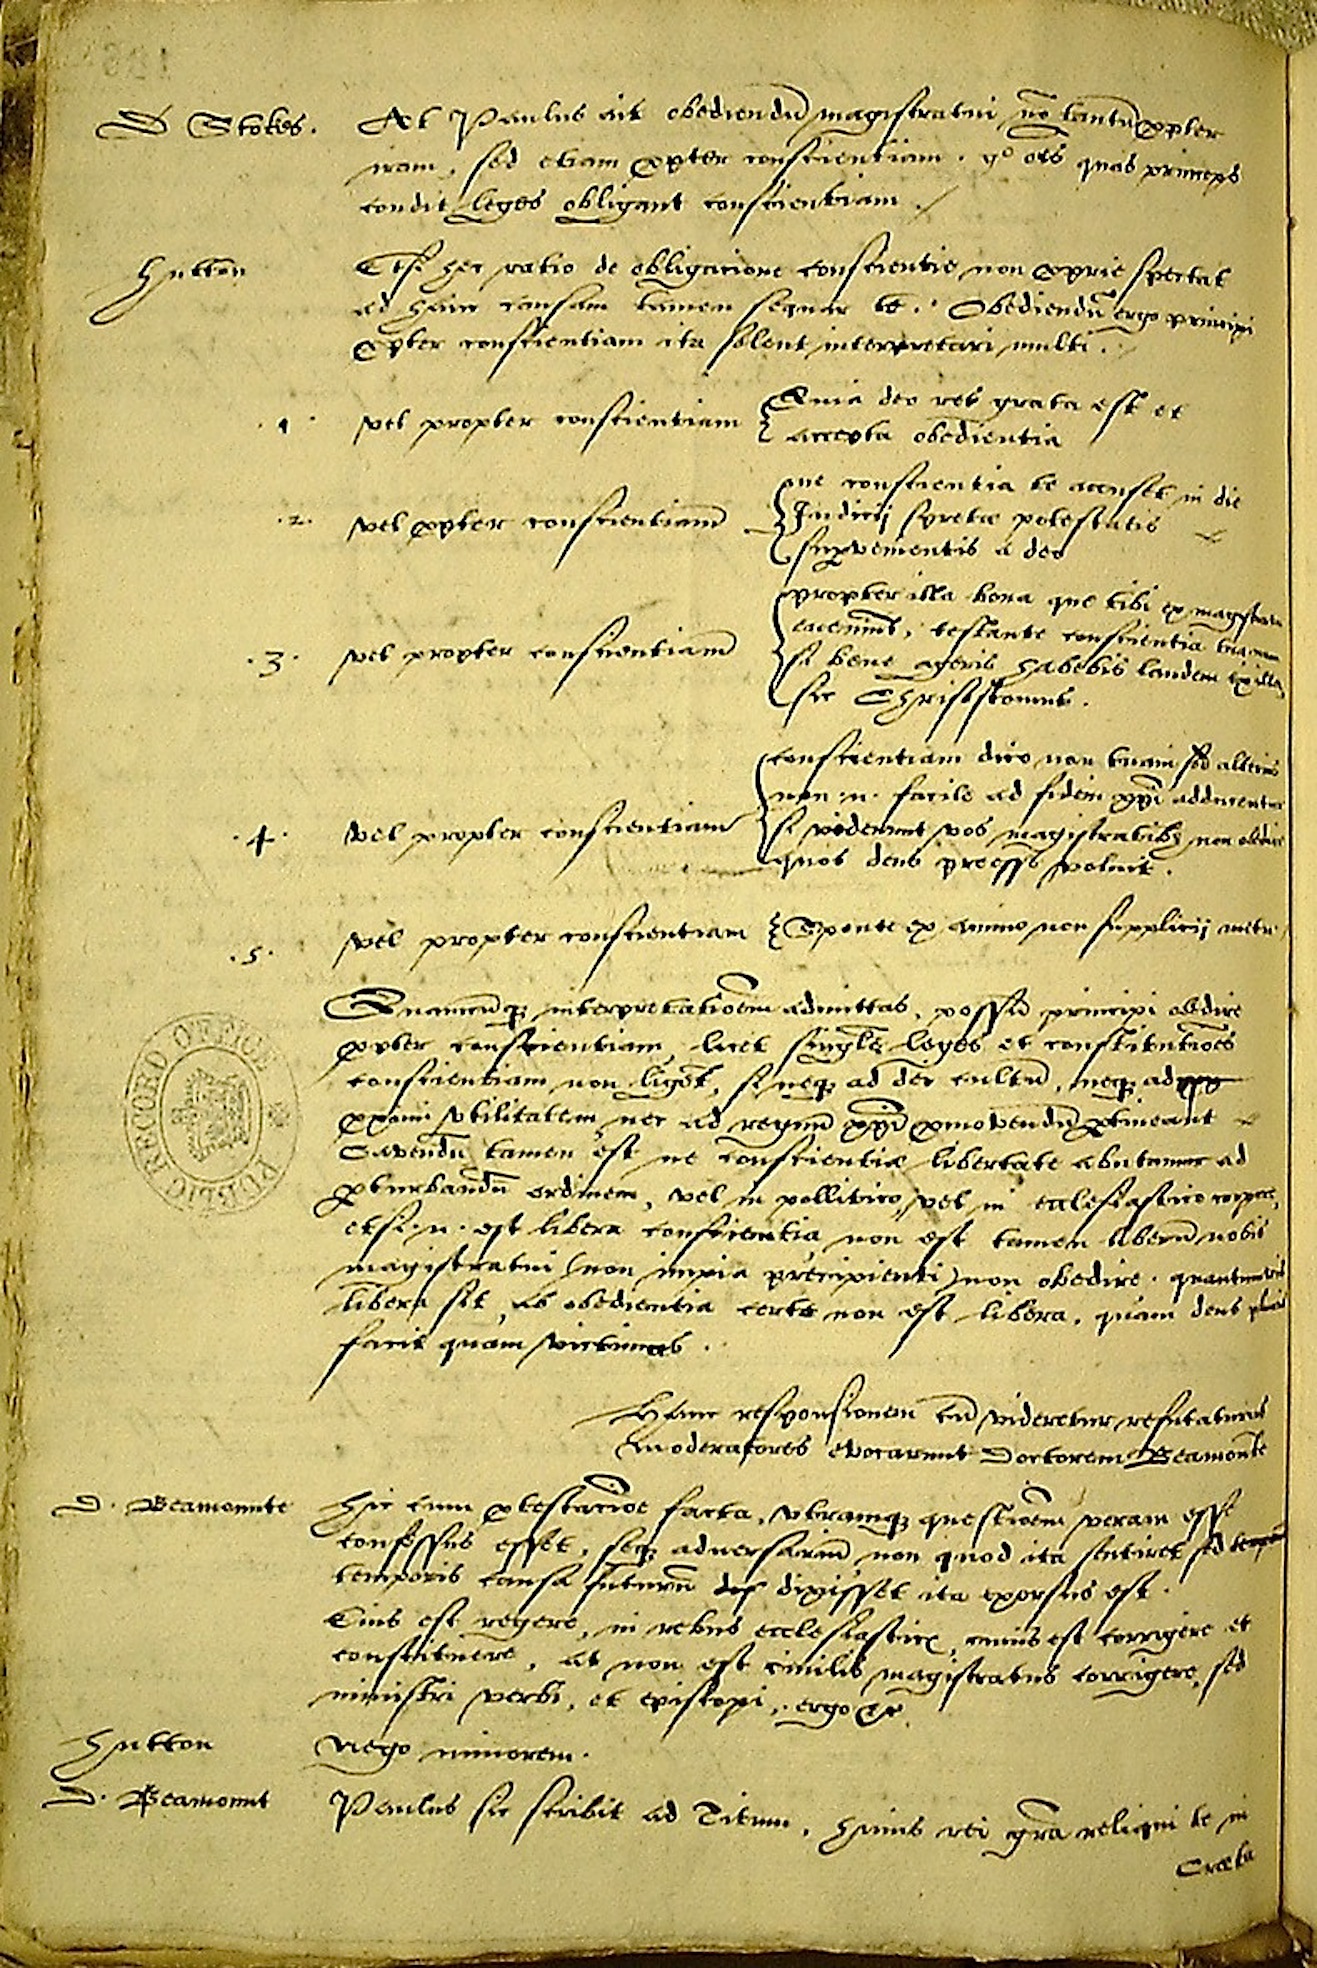 D Stokes. At Paulus ait obediendū magistratui nō tantū ꝓpter
iram, sed etiam ꝓpter conscientiam. gº oēs quas princeps
condit leges obligant conscientiam.
Hutton Etsi hec ratio de obligatione conscientie non ꝓprie spectat
ad hanc causam tamen sequar te. Obediendū ergo principi
ꝓpter conscientiam ita solent interpretari multi.
.1. vel propter conscientiam { Quia deo res grata est et
accepta obedientia
.2. vel ꝓpter conscientiam { ne conscientia te accuset in die
Judicij spretæ potestatis
supvenientis a deo
.3. vel propter conscientiam { propter illa bona que tibi ex magistratu
eveniūt, testante conscientia
si bene ageris habebis laudem ex illa,
sic Christostomus.
.4. vel propter conscientiam { conscientiam dico non tuam sed alterius
non .n. facile ad fidem xpī adducentur
si viderint vos magistratibȝ non obedire
quos deus preesse voluit.
.5. vel propter conscientiam { Sponte ex animo non supplicij metu
Quamcūqȝ interpretationem admittas, possū principi obedire
ꝓpter conscientiam, licet singulę leges et constitutiōes
conscientiam non ligēt, si neqȝ ad dei cultū, neqȝ ad
ꝓximi vtilitatem nec ad regnū xpī ꝓmovendū ꝑtineant
Cavendū tamen est ne conscientiæ libertate abutamur ad
ꝑturbandū ordinem, vel in pollitico, vel in ecclesiastico corpore,
etsi .n. est libera conscientia, non est tamen liberū nobis
magistratui (non impia precipienti) non obedire. quantumvis
libera sit, ab obedientia certe non est libera, quam deus pluris
facit quam victimas.
Hanc responsionem cū videretur refutaturus
moderatores evocarunt Doctorem Beamonte
D. Beamonnte Hic cum ꝓtestatioē facta, vtramqȝ questionem veram esse
confessus esset, seqȝ adversariū non quod ita sentiret sed
temporis causa futurū dixisset ita exorsus est.
Eius est regere, in rebus ecclesiasticę, cuius est corrigere et
constituere, at non est civilis magistratus corrigere, sed
ministri verbi, et episcopi, ergo &c.
Hutton Nego minorem.
D. Beamont Paulus sic scribit ad Titum, huius rei grā reliqui te in
Creta
PUBLIC RECORD OFFICE